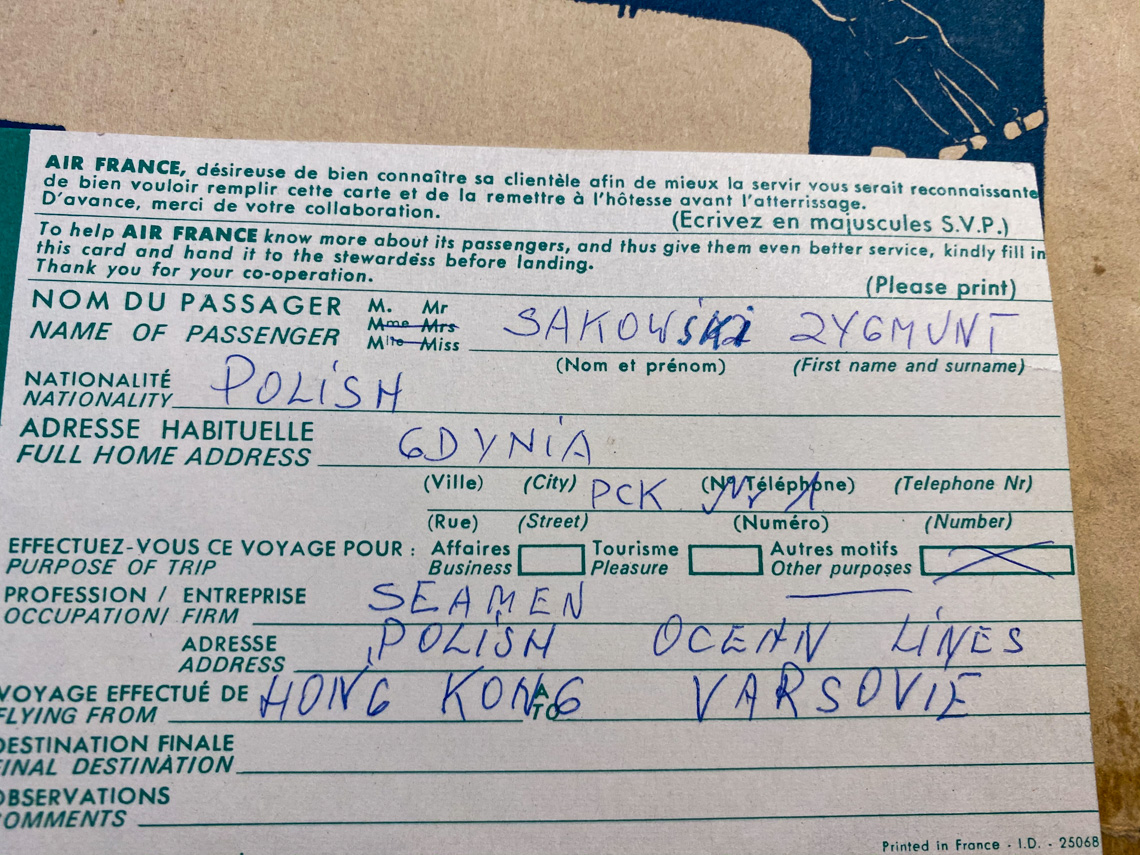 AIR FRANCE, désireuse de bien connaître sa clientèle afin de mieux la servir vous serait reconnaissante
de bien vouloir remplir cette carte et de la remettre à l'hôtesse avant l'atterrissage.
D'avance, merci de votre collaboration. (Ecrivez en majuscules S.V.P.)
To help AIR FRANCE know more about its passengers, and thus give them even better service, kindly fill in
this card and hand it to the stewardess before landing.
Thank you for your co-operation. (Please print)
NOM DU PASSAGER M. Mr
NAME OF PASSENGER Mme Mrs SAKOWSKI ZYGMUNT
Mlle Miss
(Nom et prénom) (First name and surname)
NATIONALITÉ
NATIONALITY POLISH
ADRESSE HABITUELLE
FULL HOME ADDRESS GDYNIA
(Ville) (City) (No Téléphone) (Telephone Nr)
PCK Nr 1
(Rue) (Street) (Numéro) (Number)
EFFECTUEZ-VOUS CE VOYAGE POUR : Affaires Tourisme Autres motifs
PURPOSE OF TRIP Business Pleasure Other purposes
PROFESSION / ENTREPRISE
OCCUPATION/ FIRM SEAMEN
ADRESSE
ADDRESS POLISH OCEAN LINES
VOYAGE EFFECTUÉ DE A
FLYING FROM HONG KONG TO VARSOVIE
DESTINATION FINALE
FINAL DESTINATION
OBSERVATIONS
COMMENTS
Printed in France - I.D. - 25068